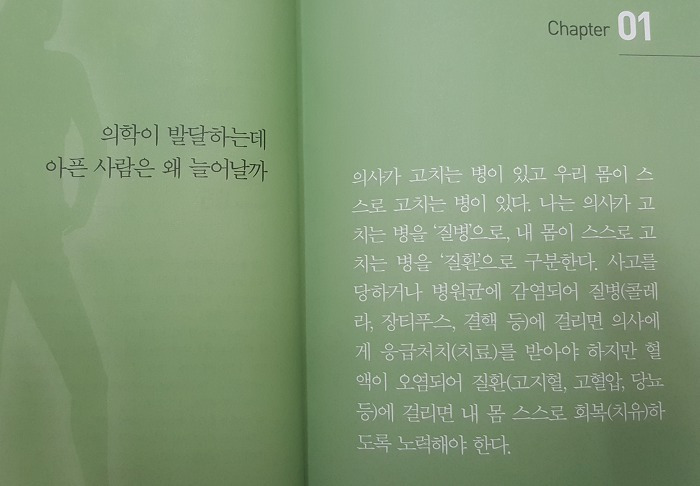 의학이 발달하는데
아픈 사람은 왜 늘어날까
Chapter 01
의사가 고치는 병이 있고 우리 몸이 스
스로 고치는 병이 있다. 나는 의사가 고
치는 병을 ‘질병’으로, 내 몸이 스스로 고
치는 병을 ‘질환’으로 구분한다. 사고를
당하거나 병원균에 감염되어 질병(콜레
라, 장티푸스, 결핵 등)에 걸리면 의사에
게 응급처치(치료)를 받아야 하지만 혈
액이 오염되어 질환(고지혈, 고혈압, 당뇨
등)에 걸리면 내 몸 스스로 회복(치유)하
도록 노력해야 한다.